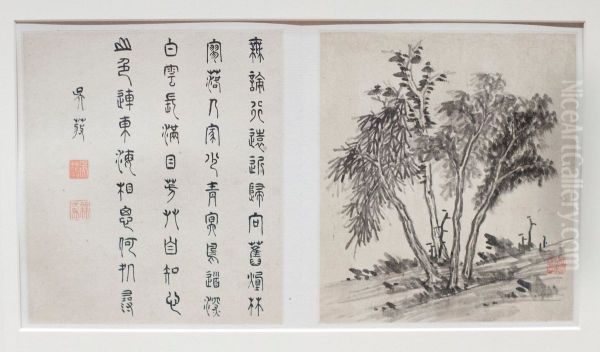 無論行遠近歸向舊煙林
寥落人家少青冥鳥道深
白雲長滿目芳艸自知心
山色連東海相思何処尋
吳
NiceArtGallery.com